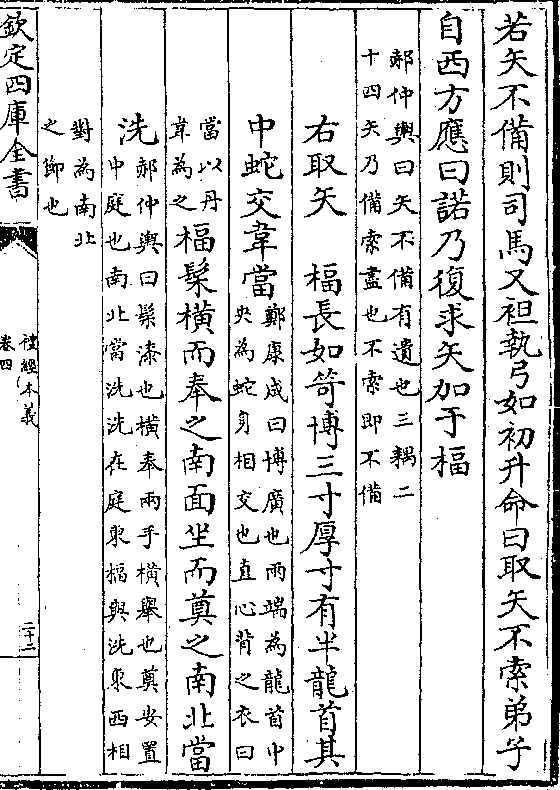 若矢不備則司馬又袒執弓如初升命曰取矢不索弟子
自西方應曰諾乃復求矢加于楅
郝仲輿曰矢不備有遺也三耦二
十四矢乃備索盡也不索即不備
右取矢　楅長如笴博三寸厚寸有半龍首其
中蛇交韋當
鄭康成曰博廣也兩端為龍首中
央為蛇身相交也直心背之衣曰
當以丹
韋為之
楅髤橫而奉之南面坐而奠之南北當
洗
郝仲輿曰髤漆也橫奉兩手橫舉也奠安置
中庭也南北當洗洗在庭東楅與洗東西相
對為南北
之節也
欽定四庫全書
禮經本義
卷四
二十二